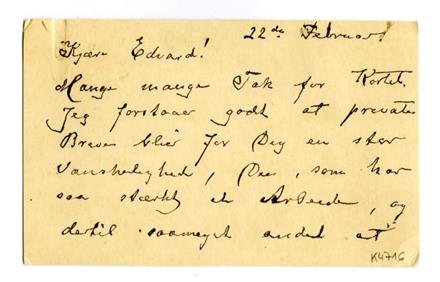 22de Februar!
Kjære Edvard!
Mange mange Tak for Kortet.
Jeg forstaar godt at private
Breve blir for Dig en stor
Vanskelighed, Du, som har
saa stærkt et Arbeide, og
dertil saameget andet at
K4716